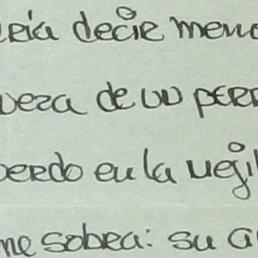 ería decir meno
veza de un perr
uerdo en la vegi
me sobra: su a